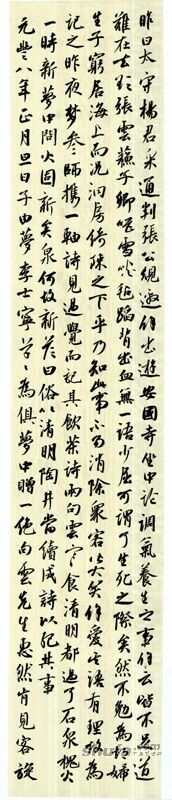 昨日太守楊君采通判張公規邀余出遊安國寺坐中論調氣養生之事余云皆不足道
難在去欲張雲蘇子卿嚙雪啖氈蹈背出血無一語少屈可謂了生死之際矣然不勉為胡婦
生子窮居海上而況洞房綺疎之下乎乃知此事不易消除眾客皆大笑余愛其語有理故為
記之昨夜夢參師攜一軸詩見過覺而記其飲茶詩兩句雲寒食清明都過了石泉槐火
一時新夢中問火固新矣泉何故新答曰俗以清明陶井當續成詩以紀其事
元豐八年正月旦日子由夢李士寧草草為俱夢中贈一絕句雲先生惠然肯見客旋